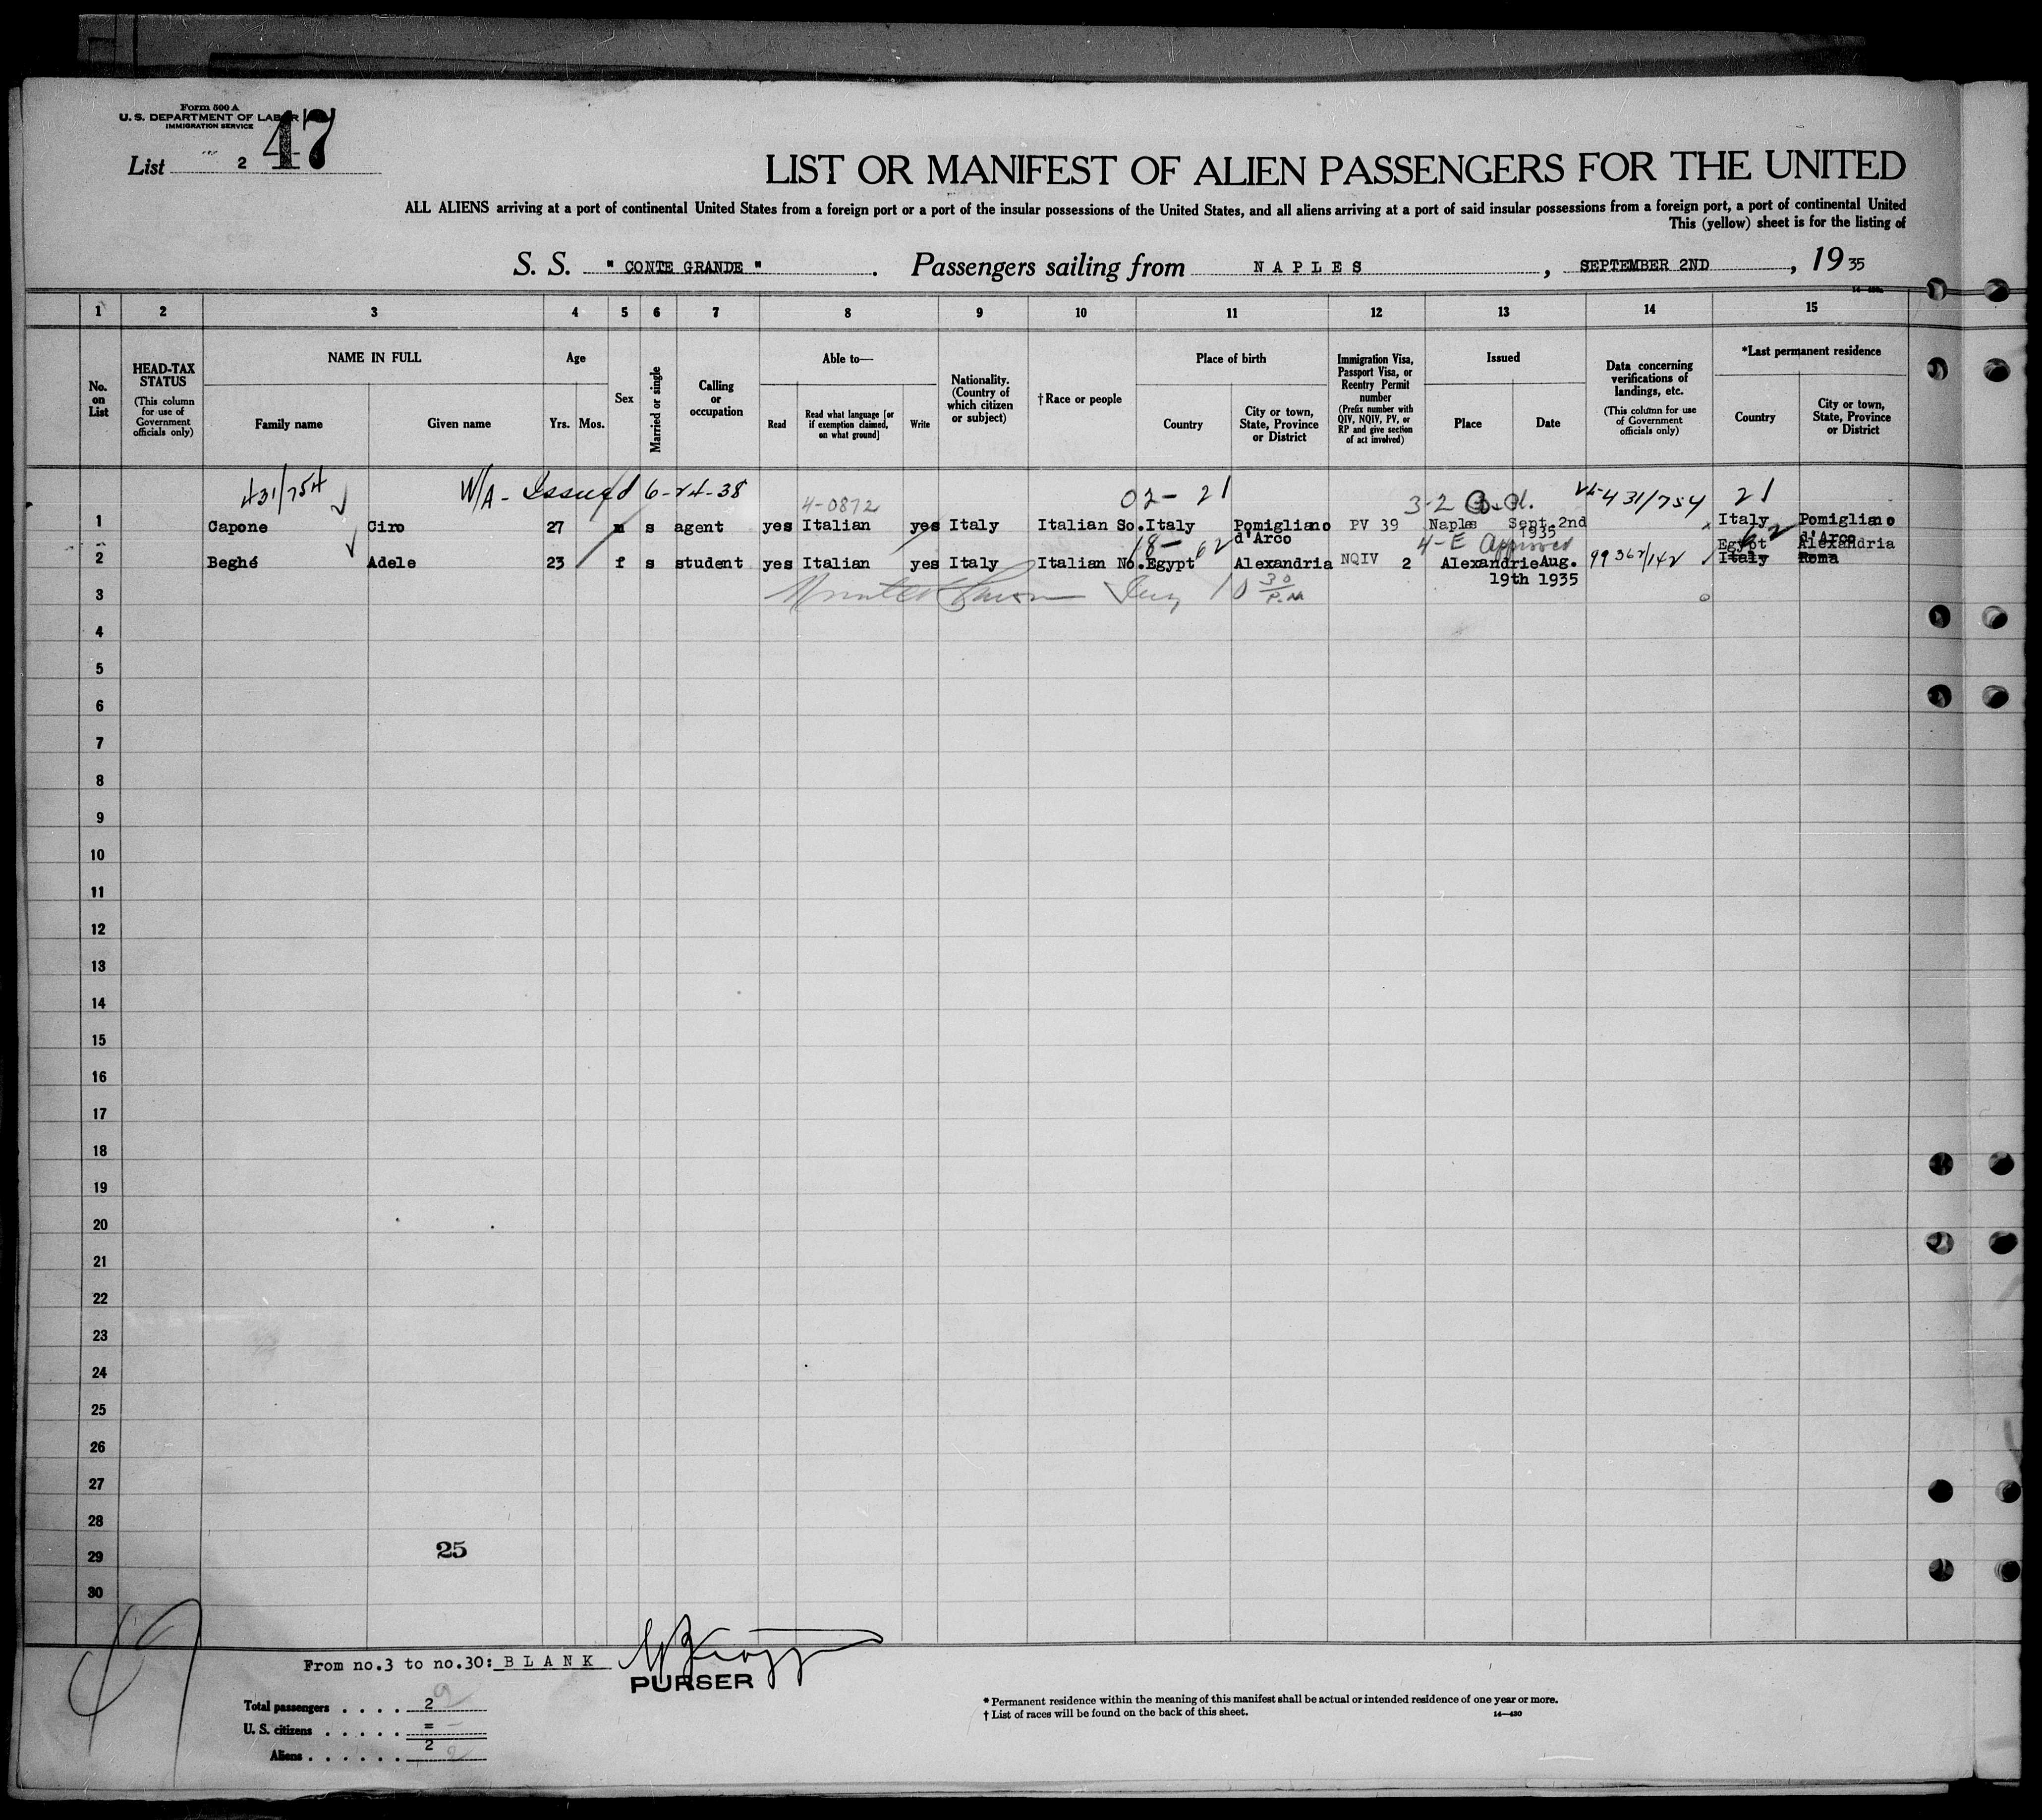 Form 500 A
U. S. DEPARTMENT OF LABOR
IMMIGRATION SERVICE
47
List 2
LIST OR MANIFEST OF ALIEN PASSENGERS FOR THE UNITED
ALL ALIENS arriving at a port of continental United States from a foreign port or a port of the insular possessions of the United States, and all aliens arriving at a port of said insular possessions from a foreign port, a port of continental United
This (yellow) sheet is for the listing of
S. S. " CONTE GRANDE " . Passengers sailing from NAPLES , SEPTEMBER 2ND , 19 35
1 2 3 4 5 6 7 8 9 10 11 12 13 14 15
No. on List
HEAD-TAX STATUS
(This column for use of Government officials only)
NAME IN FULL
Family name Given name
Age
Yrs. Mos.
Sex
Married or single
Calling or occupation
Able to—
Read
Read what language [or if exemption claimed, on what ground]
Write
Nationality. (Country of which citizen or subject)
†Race or people
Place of birth
Country
City or town, State, Province or District
Immigration Visa, Passport Visa, or Reentry Permit number
(Prefix number with QIV, NQIV, PV, or RP and give section of act involved)
Issued
Place Date
Data concerning verifications of landings, etc.
(This column for use of Government officials only)
*Last permanent residence
Country
City or town, State, Province or District
431/754 W/A - Issued 6-24-38 4-0872 02- 21 3-2 431/754 21
1 Capone Ciro 27 m s agent yes Italian yes Italy Italian So. Italy Pomigliano d'Arco PV 39 Naples Sept.2nd 1935 Italy Pomigliano d'Arco
18- 62 4-E Approved 62
Egypt Alexandria
2 Beghé Adele 23 f s student yes Italian yes Italy Italian No. Egypt Alexandria NQIV 2 Alexandrie Aug. 19th 1935 99362/142 Italy Roma
10 30 P.M
3
4
5
6
7
8
9
10
11
12
13
14
15
16
17
18
19
20
21
22
23
24
25
26
27
28
29
25
30
From no.3 to no.30: BLANK
PURSER
Total passengers . . . . 2
U. S. citizens . . . . . =
Aliens . . . . . . 2
* Permanent residence within the meaning of this manifest shall be actual or intended residence of one year or more.
† List of races will be found on the back of this sheet.
14—430